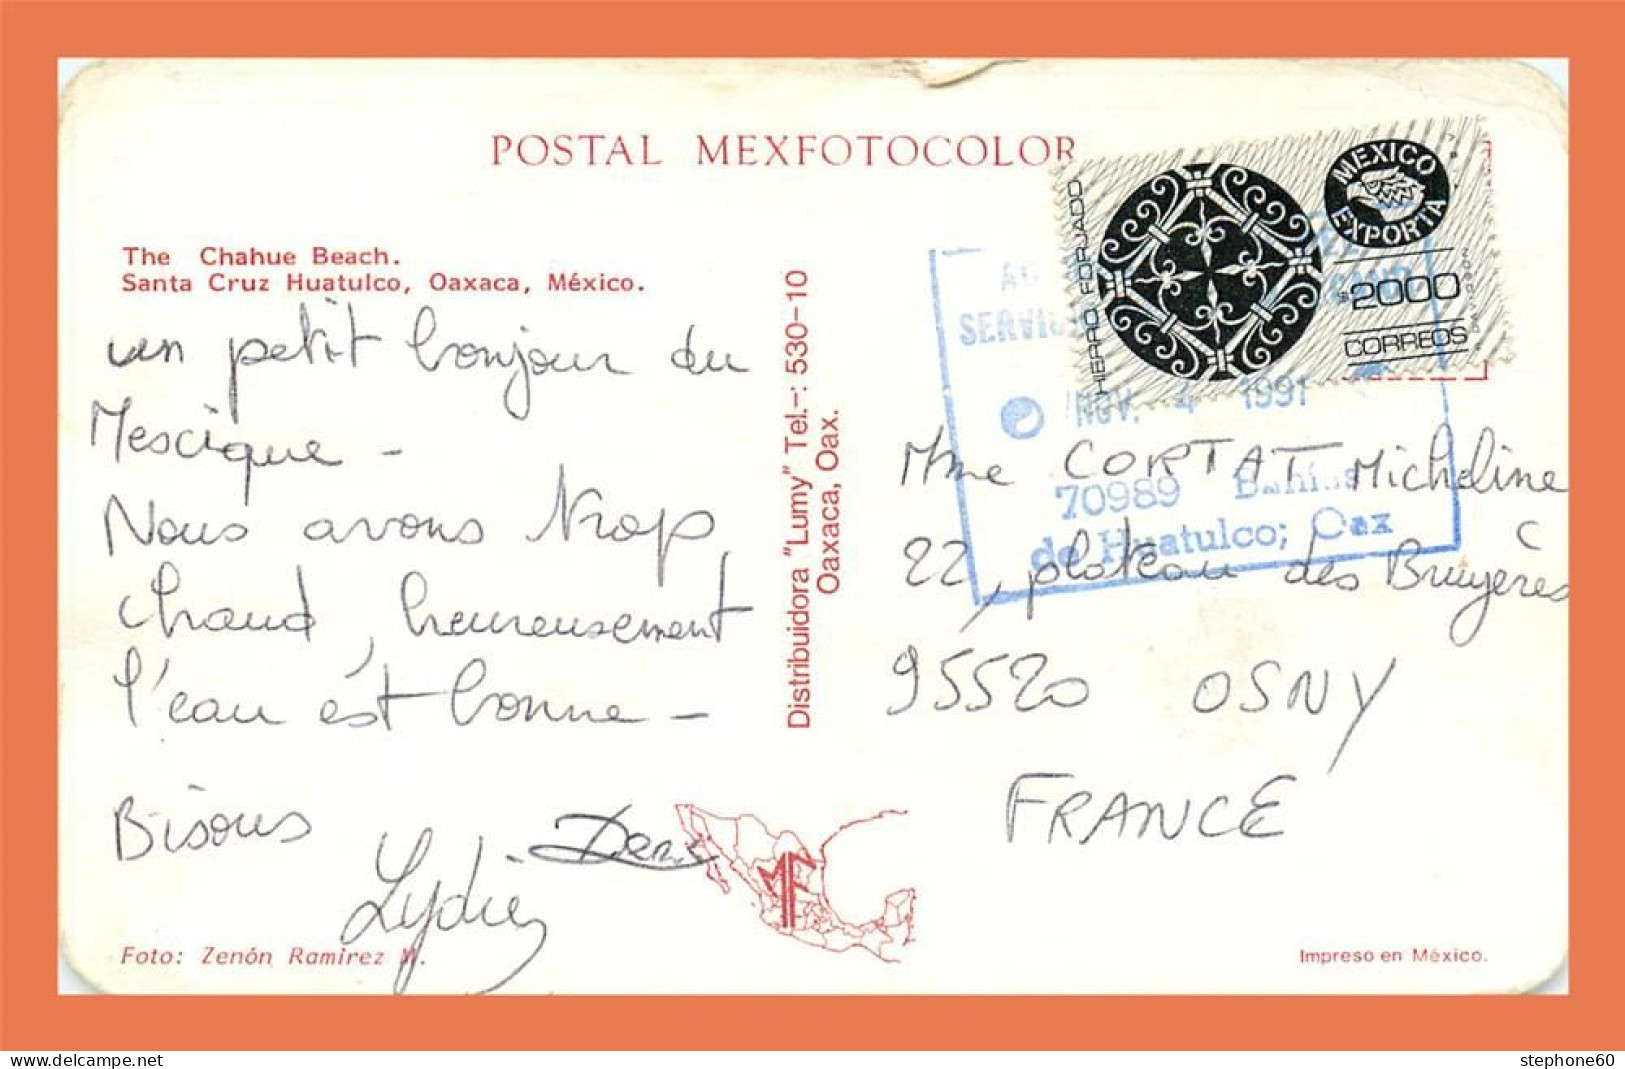 POSTAL MEXFOTOCOLOR
The Chahue Beach.
Santa Cruz Huatulco, Oaxaca, México.
un petit bonjour du
Mescique -
Nous avons trop
chaud, heureusement
l'eau est bonne -
Bisous
Lydie
Foto: Zenón Ramirez M.
Distribuidora "Lumy" Tel.-: 530-10
Oaxaca, Oax.
HIERRO FORJADO
MEXICO
EXPORTA
$2000
CORREOS
NOV. 4 1991
70989 Bahías
de Huatulco; Oax
Mme CORTAT Micheline
22, plateau des Bruyères
95520 OSNY
FRANCE
Impreso en México.
stephone60